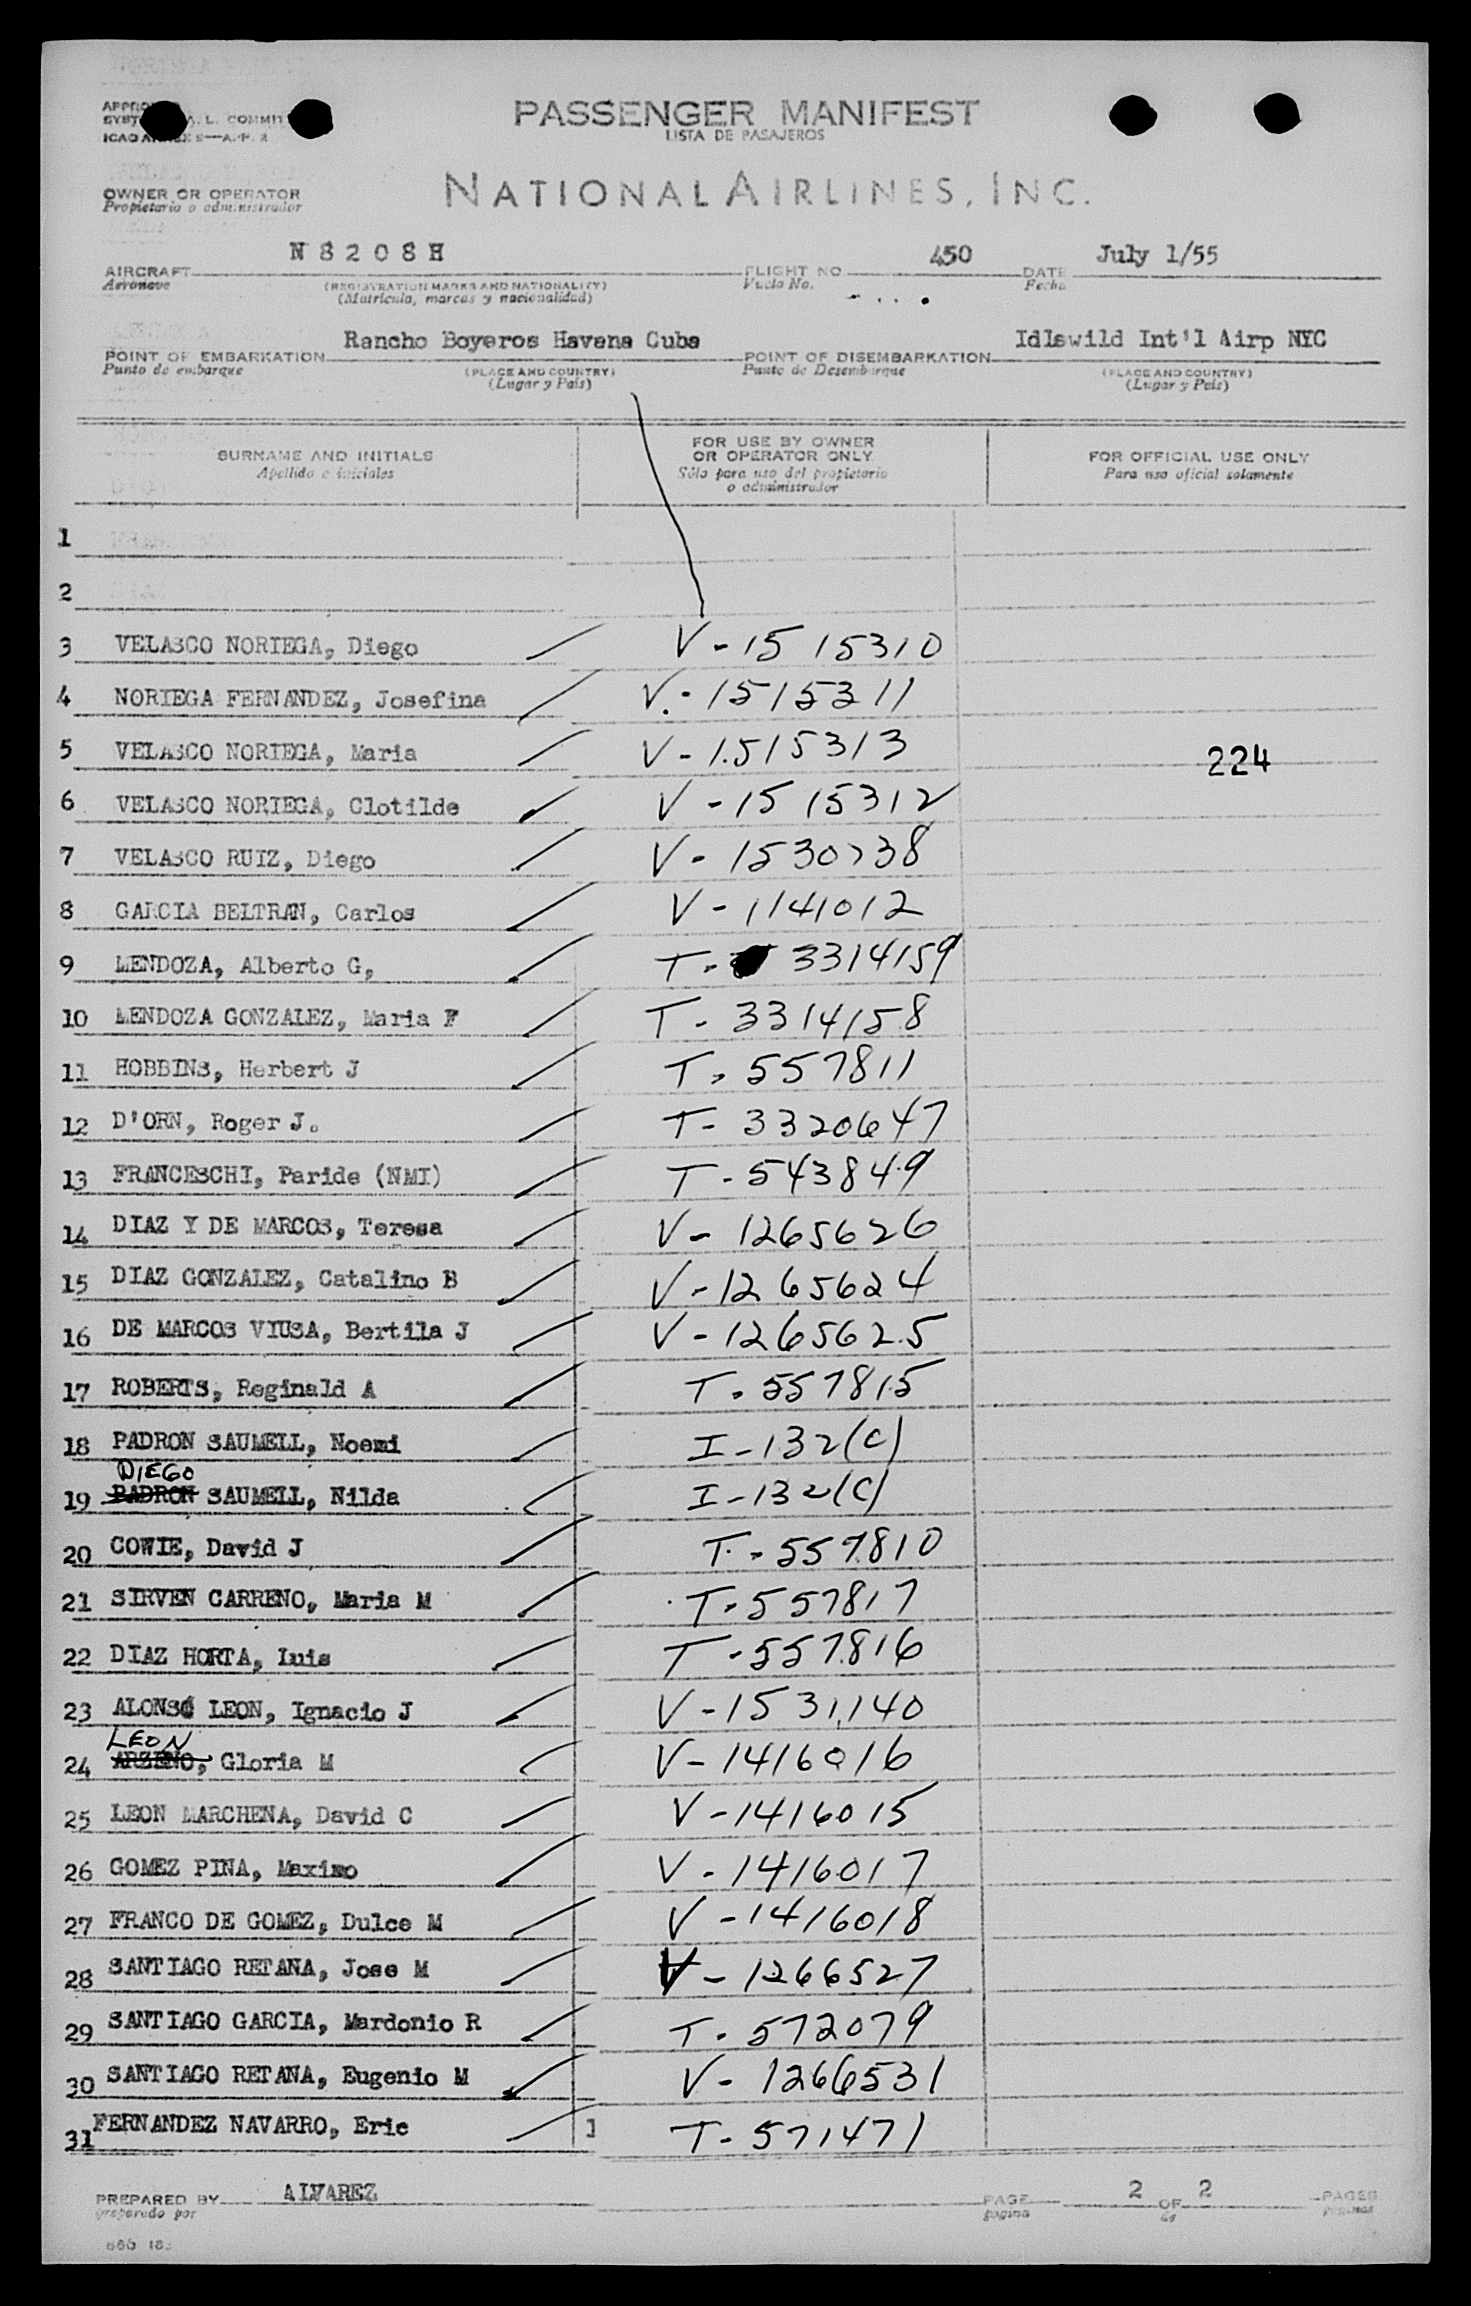 PASSENGER MANIFEST
LISTA DE PASAJEROS
OWNER OR OPERATOR
Propietario o administrador
NATIONAL AIRLINES, INC.
N8208H 450 July 1/55
AIRCRAFT FLIGHT NO DATE
Aeronave (REGISTRATION MARKS AND NATIONALITY) Vuelo No. Fecha
(Matricula, marcas y nacionalidad)
Rancho Boyeros Havana Cuba Idlewild Int'l Airp NYC
POINT OF EMBARKATION POINT OF DISEMBARKATION
Punto de embarque (PLACE AND COUNTRY) Punto de Desembarque (PLACE AND COUNTRY)
(Lugar y País) (Lugar y País)
SURNAME AND INITIALS FOR USE BY OWNER OR OPERATOR ONLY FOR OFFICIAL USE ONLY
Apellido e iniciales Sólo para uso del propietario o administrador Para uso oficial solamente
1
2
3 VELASCO NORIEGA, Diego V-1515310
4 NORIEGA FERNANDEZ, Josefina V-1515311
5 VELASCO NORIEGA, Maria V-1515313 224
6 VELASCO NORIEGA, Clotilde V-1515312
7 VELASCO RUIZ, Diego V-1530738
8 GARCIA BELTRAN, Carlos V-1141012
9 MENDOZA, Alberto G, T-3314159
10 MENDOZA GONZALEZ, Maria F T-3314158
11 HOBBINS, Herbert J T-557811
12 D'ORN, Roger J. T-3320647
13 FRANCESCHI, Paride (NMI) T-543849
14 DIAZ Y DE MARCOS, Teresa V-1265626
15 DIAZ GONZALEZ, Catalino B V-1265624
16 DE MARCOS VIUSA, Bertila J V-1265625
17 ROBERTS, Reginald A T-557815
18 PADRON SAUMELL, Noemi I-132(C)
DIEGO
19 PADRON SAUMELL, Nilda I-132(C)
20 COWIE, David J T-557810
21 SIRVEN CARRENO, Maria M T-557817
22 DIAZ HORTA, Luis T-557816
23 ALONSO LEON, Ignacio J V-1531140
LEON
24 ARZENO, Gloria M V-1416016
25 LEON MARCHENA, David C V-1416015
26 GOMEZ PINA, Maximo V-1416017
27 FRANCO DE GOMEZ, Dulce M V-1416018
28 SANTIAGO RETANA, Jose M V-1266527
29 SANTIAGO GARCIA, Mardonio R T-572079
30 SANTIAGO RETANA, Eugenio M V-1266531
31 FERNANDEZ NAVARRO, Eric T-571471
PREPARED BY ALVAREZ PAGE 2 OF 2 PAGES
preparado por pagina de paginas